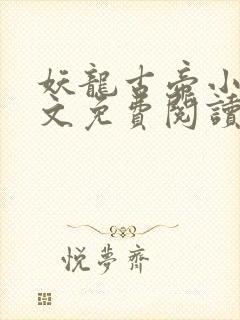 妖龍古帝小
文免費閱讀
悅夢齋